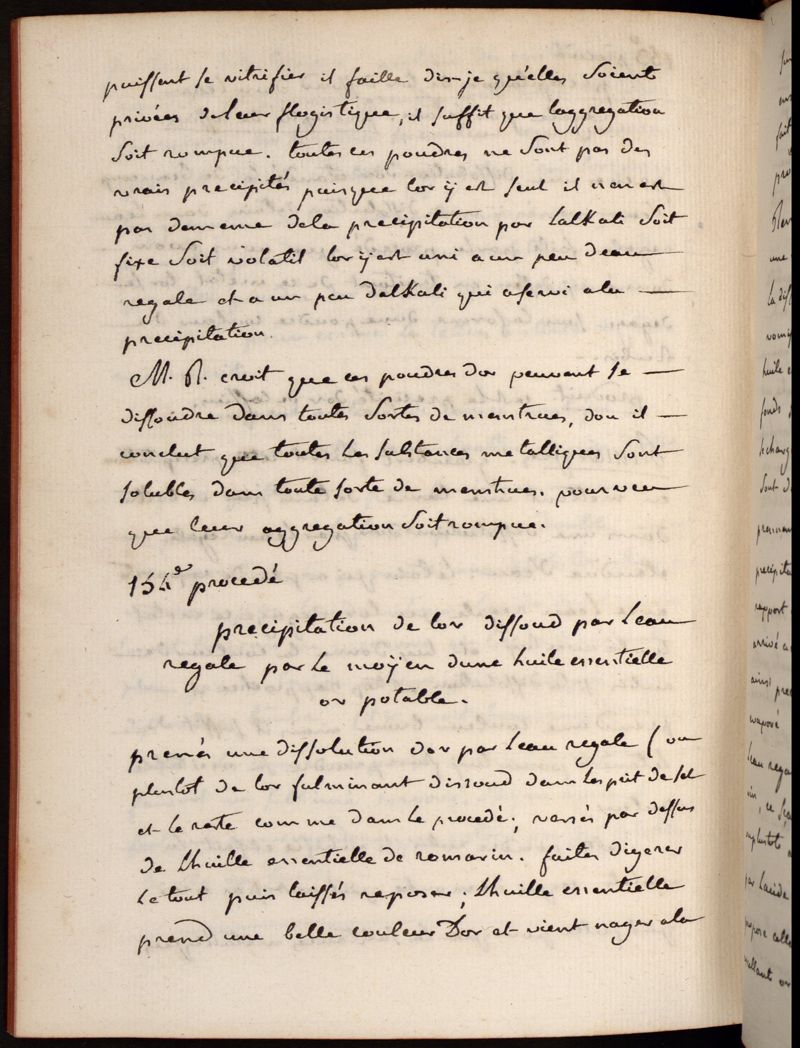 puissent se vitrifier il faille dis-je qu'elles soient
privées de leur flogistique, il suffit que laggregation
soit rompue. toutes ces poudres ne sont pas des
vrais precipités puisque lor ÿ est seul il nen est
pas de meme de la precipitation par lalkali soit
fixe soit volatil lor ÿ est uni a un peu deau
regale et a un peu dalkali qui a servi a la —
precipitation.
M. R. croit que ces poudres dor peuvent se —
dissoudre dans toutes sortes de menstrues, dou il —
conclut que toutes les substances metalliques sont
solubles dans toute sorte de menstrues. pourveu
que leur aggregation soit rompue.
154e procedé
precipitation de lor dissoud par leau
regale par le moÿen dune huile essentielle
or potable.
prenés une dissolution dor par leau regale (ou
plustot de lor fulminant dissoud dans lesprit de sel
et le reste comme dans le procedé ; versés par dessus
de lhuille essentielle de romarin. faites digerer
le tout puis laissés reposer ; lhuille essentielle
prend une belle couleur Dor et vient nager a la